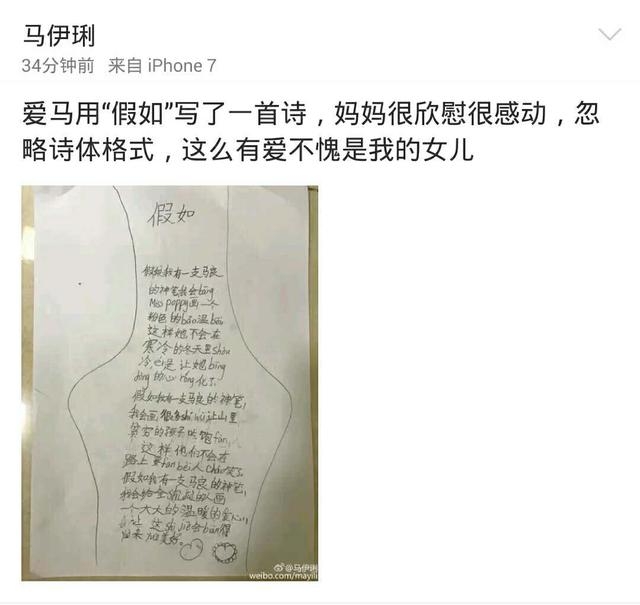 马伊琍
34分钟前 来自 iPhone 7
爱马用“假如”写了一首诗，妈妈很欣慰很感动，忽
略诗体格式，这么有爱不愧是我的女儿
假如
假如我有一支马良
的神笔我会bāng
Miss poppy画一个
粉色的bǎo温bēi
这样她不会在
寒冷的冬天里shòu
冷,也是让她bīng
dòng的心róng化了
假如我有一支马良的神笔,
我会画很多shí wù让山里
贫穷的孩子吃饱fàn,
这样他们不会在
路上要fàn bèi人cháo笑了
假如我有一支马良的神笔,
我会给全
的人画
一个大大的温暖的爱心,
让这shì jiè会biàn得
越来越美好。
@马伊琍
weibo.com/mayili